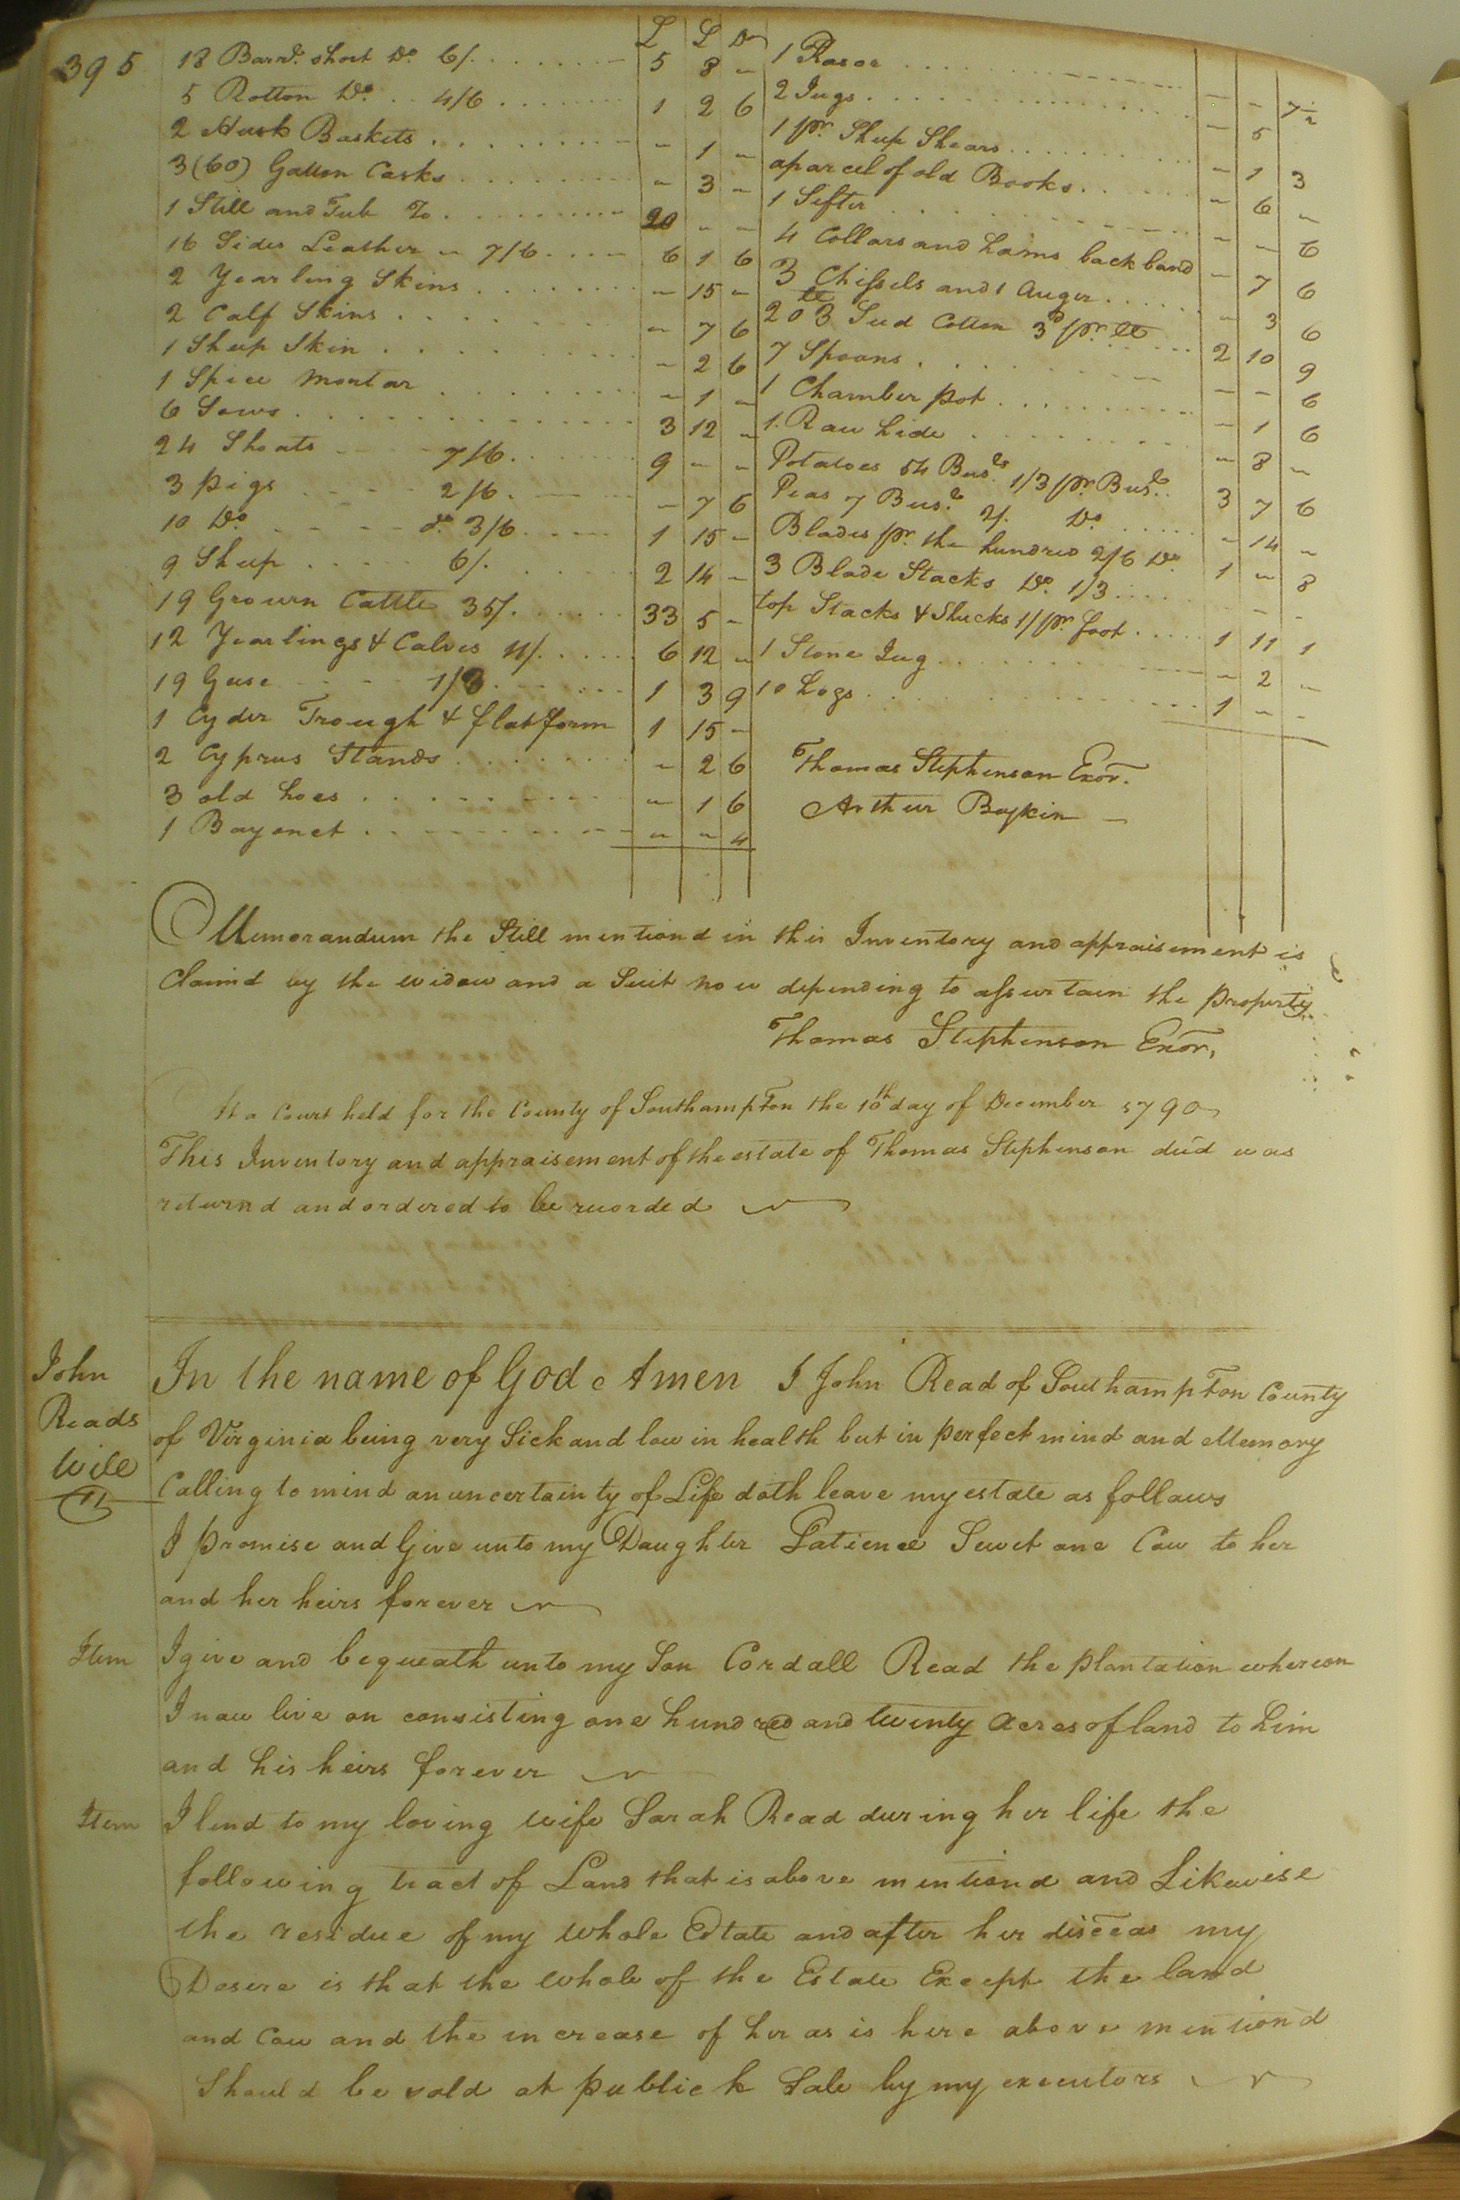 395
£ S D
18 Barrls. short Do. 6/. 5 8 –
5 Rotton Do. 4/6 1 2 6
2 Husk Baskets – 1 –
3 (60) Gallon Casks – 3 –
1 Still and Tub &c. 20 – –
16 Sides Leather – 7/6 6 1 6
2 Yearling Skins – 15 –
2 Calf Skins – 7 6
1 Sheep Skin – 2 6
1 Spice Mortar – 1 –
6 Sows 3 12 –
24 Shoats 7/6 9 – –
3 pigs 2/6 – 7 6
10 Do. do. 3/6 1 15 –
9 Sheep 6/. 2 14 –
19 Grown Cattle 35/. 33 5 –
12 Yearlings & Calves 11/. 6 12 –
19 Geese 1/3 1 3 9
1 Cyder Trough & flatform 1 15 –
2 Cyprus Stands – 2 6
3 old hoes – 1 6
1 Bayonet – – 4
1 Rasor – – 7½
2 Jugs – 5
1 pr. Sheep Shears – 1 3
a parcel of old Books – 6 –
1 Sifter – – 6
4 Collars and hams back band – 7 6
3 Chissels and 1 Auger – 3 6
203 lb Seed Cotton 3d pr. lb 2 10 9
7 Spoons – – 6
1 Chamber pot – 1 6
1 Raw hide – 8 –
Potatoes 54 Busls. 1/3 pr. Busl. 3 7 6
Peas 7 Busl. 2/. Do. – 14 –
Blades pr. the hundred 2/6 Do. 1 – 8
3 Blade Stacks Do. 1/3 – –
top Stacks & Shucks 1/ pr. foot 1 11 1
1 Stone Jug – 2 –
10 hogs 1 – –
Thomas Stephenson Exor.
Arthur Boykin –
Memorandum the Still mentiond in this Inventory and appraisement is
Claimd by the widow and a Suit now depending to assurtain the property
Thomas Stephenson Exor,
At a Court held for the County of Southampton the 10th day of December 1790
This Inventory and appraisement of the estate of Thomas Stephenson decd was
returnd and ordered to be recorded
John
Reads
Will
In the name of God Amen I John Read of Southampton County
of Virginia being very Sick and low in health but in perfect mind and Memory
Calling to mind an uncertainty of Life doth leave my estate as follows
I promise and Give unto my Daughter Patience Sweet one Cow to her
and her heirs forever
Item I give and bequeath unto my Son Cordall Read the plantation whereon
I now live on consisting one hundred and twenty acres of land to him
and his heirs forever
Item I lend to my loving wife Sarah Read during her life the
following tract of Land that is above mentiond and Likewise
the residue of my whole Estate and after her diseeas my
Desire is that the whole of the Estate Except the land
and Cow and the increase of her as is here above mentiond
Should be sold at publick Sale by my executors